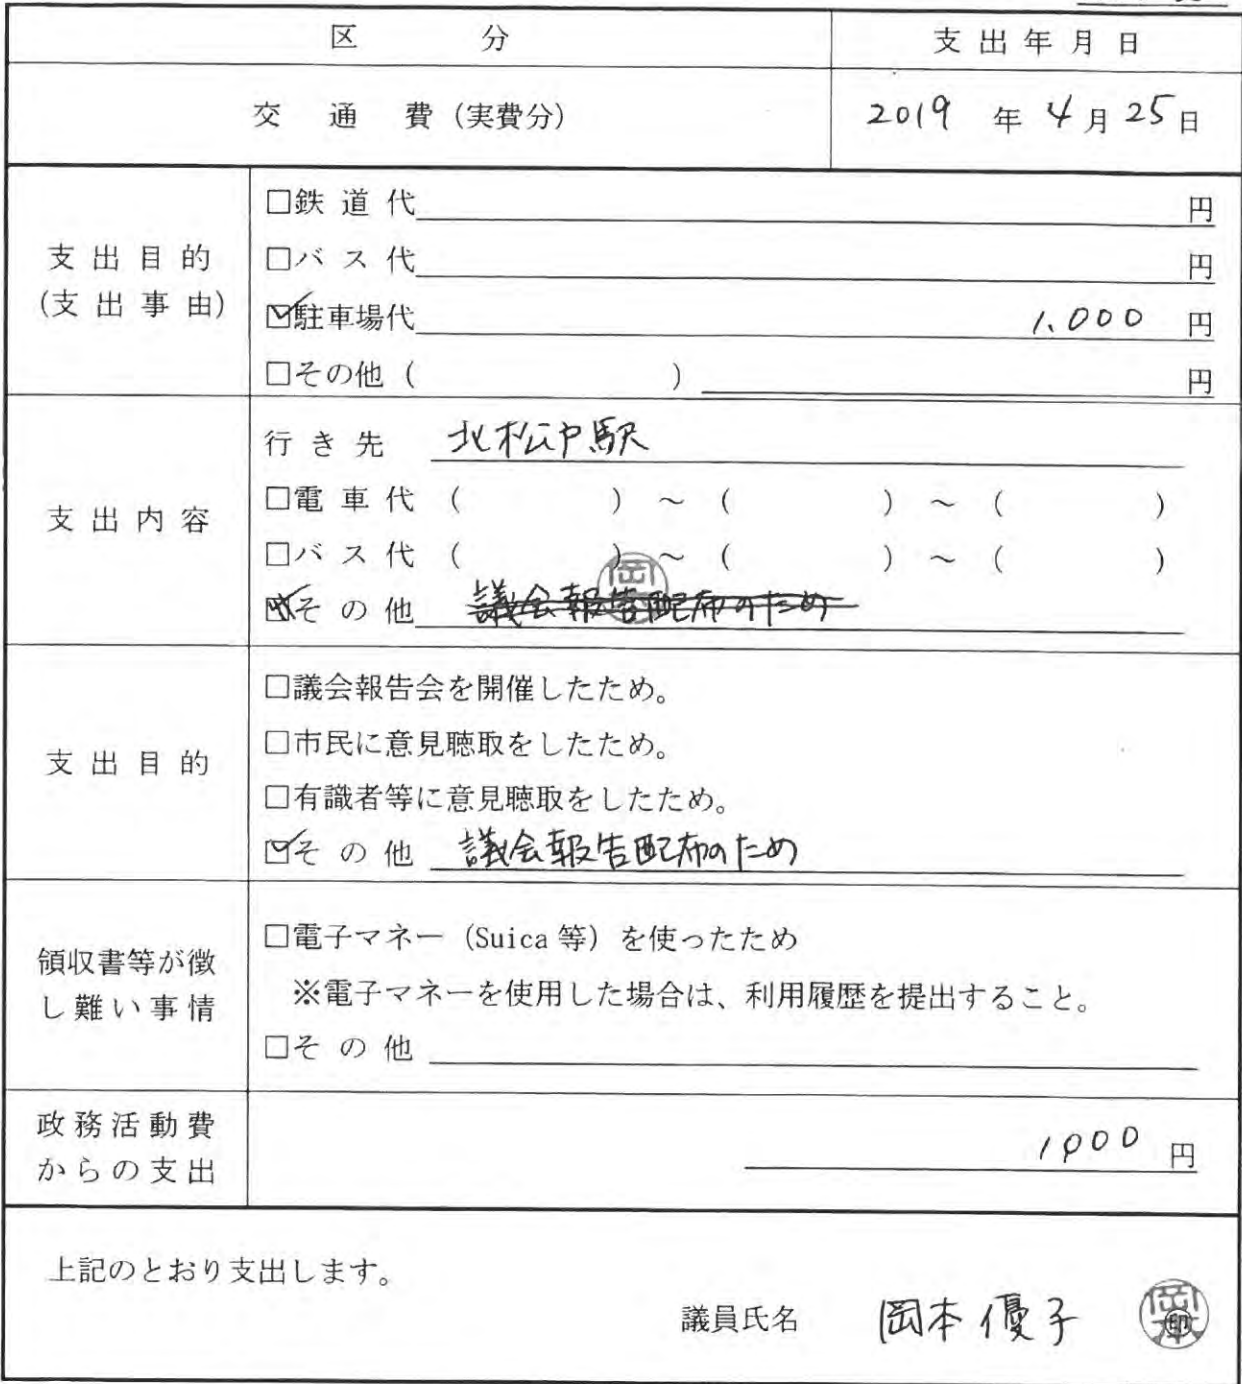 区 分 支出年月日
交 通 費 (実費分) 2019 年 4 月 25 日
支出目的
(支出事由)
□鉄道代 円
□バス代 円
☑駐車場代 1,000 円
□その他 ( ) 円
支出内容
行き先 北松戸駅
□電車代 ( ) ~ ( ) ~ ( )
□バス代 ( ) ~ ( ) ~ ( )
☑その他 議会報告配布のため
支出目的
□議会報告会を開催したため。
□市民に意見聴取をしたため。
□有識者等に意見聴取をしたため。
☑その他 議会報告配布のため
領収書等が徴
し難い事情
□電子マネー (Suica 等) を使ったため
※電子マネーを使用した場合は、利用履歴を提出すること。
□その他
政務活動費
からの支出
1000 円
上記のとおり支出します。
議員氏名 岡本優子 印